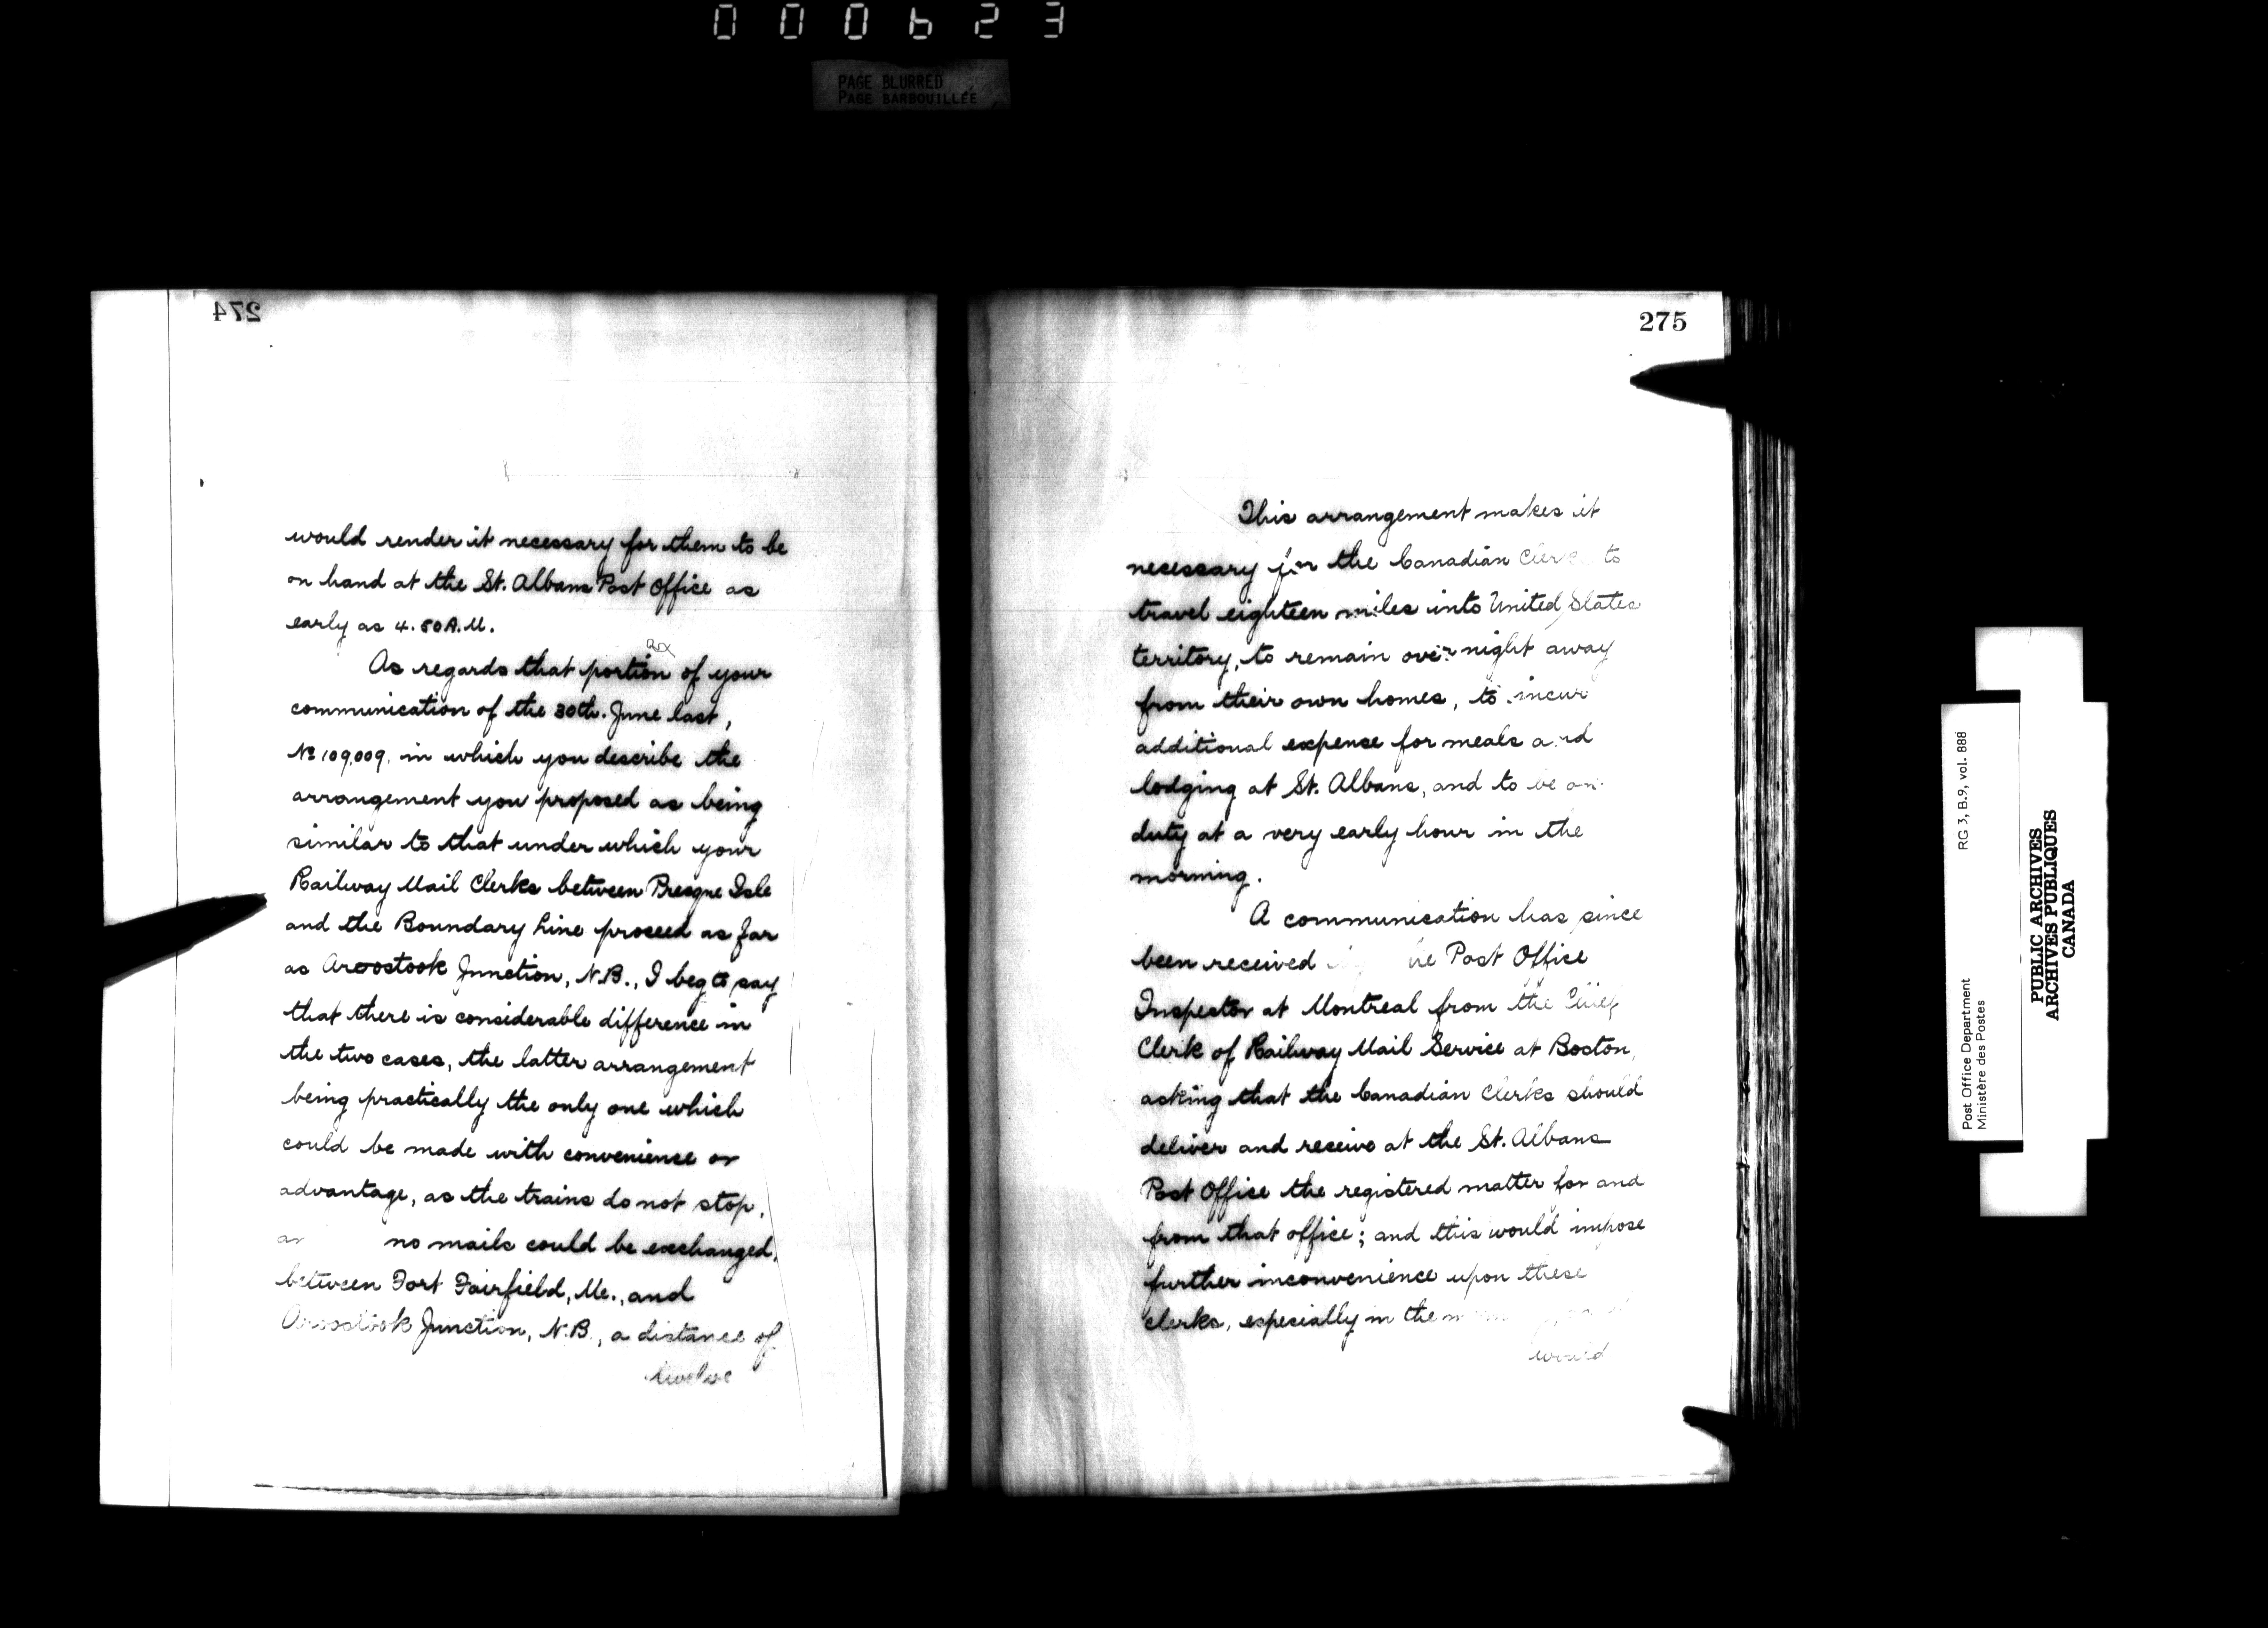 000623
PAGE BLURRED
PAGE BARBOUILLÉE
274
would render it necessary for them to be
on hand at the St. Albans Post Office as
early as 4.50 A.M.
As regards that portion of your
communication of the 30th. June last,
No 109,009, in which you describe the
arrangement you proposed as being
similar to that under which your
Railway Mail Clerks between Presque Isle
and the Boundary Line proceed as far
as Aroostook Junction, N.B., I beg to say
that there is considerable difference in
the two cases, the latter arrangement
being practically the only one which
could be made with convenience or
advantage, as the trains do not stop,
no mails could be exchanged,
between Fort Fairfield, Me., and
Aroostook Junction, N.B., a distance of
twelve
275
This arrangement makes it
necessary for the Canadian Clerks to
travel eighteen miles into United States
territory, to remain over night away
from their own homes, to incur
additional expense for meals and
lodging at St. Albans, and to be on
duty at a very early hour in the
morning.
A communication has since
been received Post Office
Inspector at Montreal from the Chief
Clerk of Railway Mail Service at Boston,
asking that the Canadian Clerks should
deliver and receive at the St. Albans
Post Office the registered matter for and
from that office; and this would impose
further inconvenience upon these
Clerks, especially in the
would
Post Office Department
Ministère des Postes
RG 3, B.9, vol. 888
PUBLIC ARCHIVES
ARCHIVES PUBLIQUES
CANADA